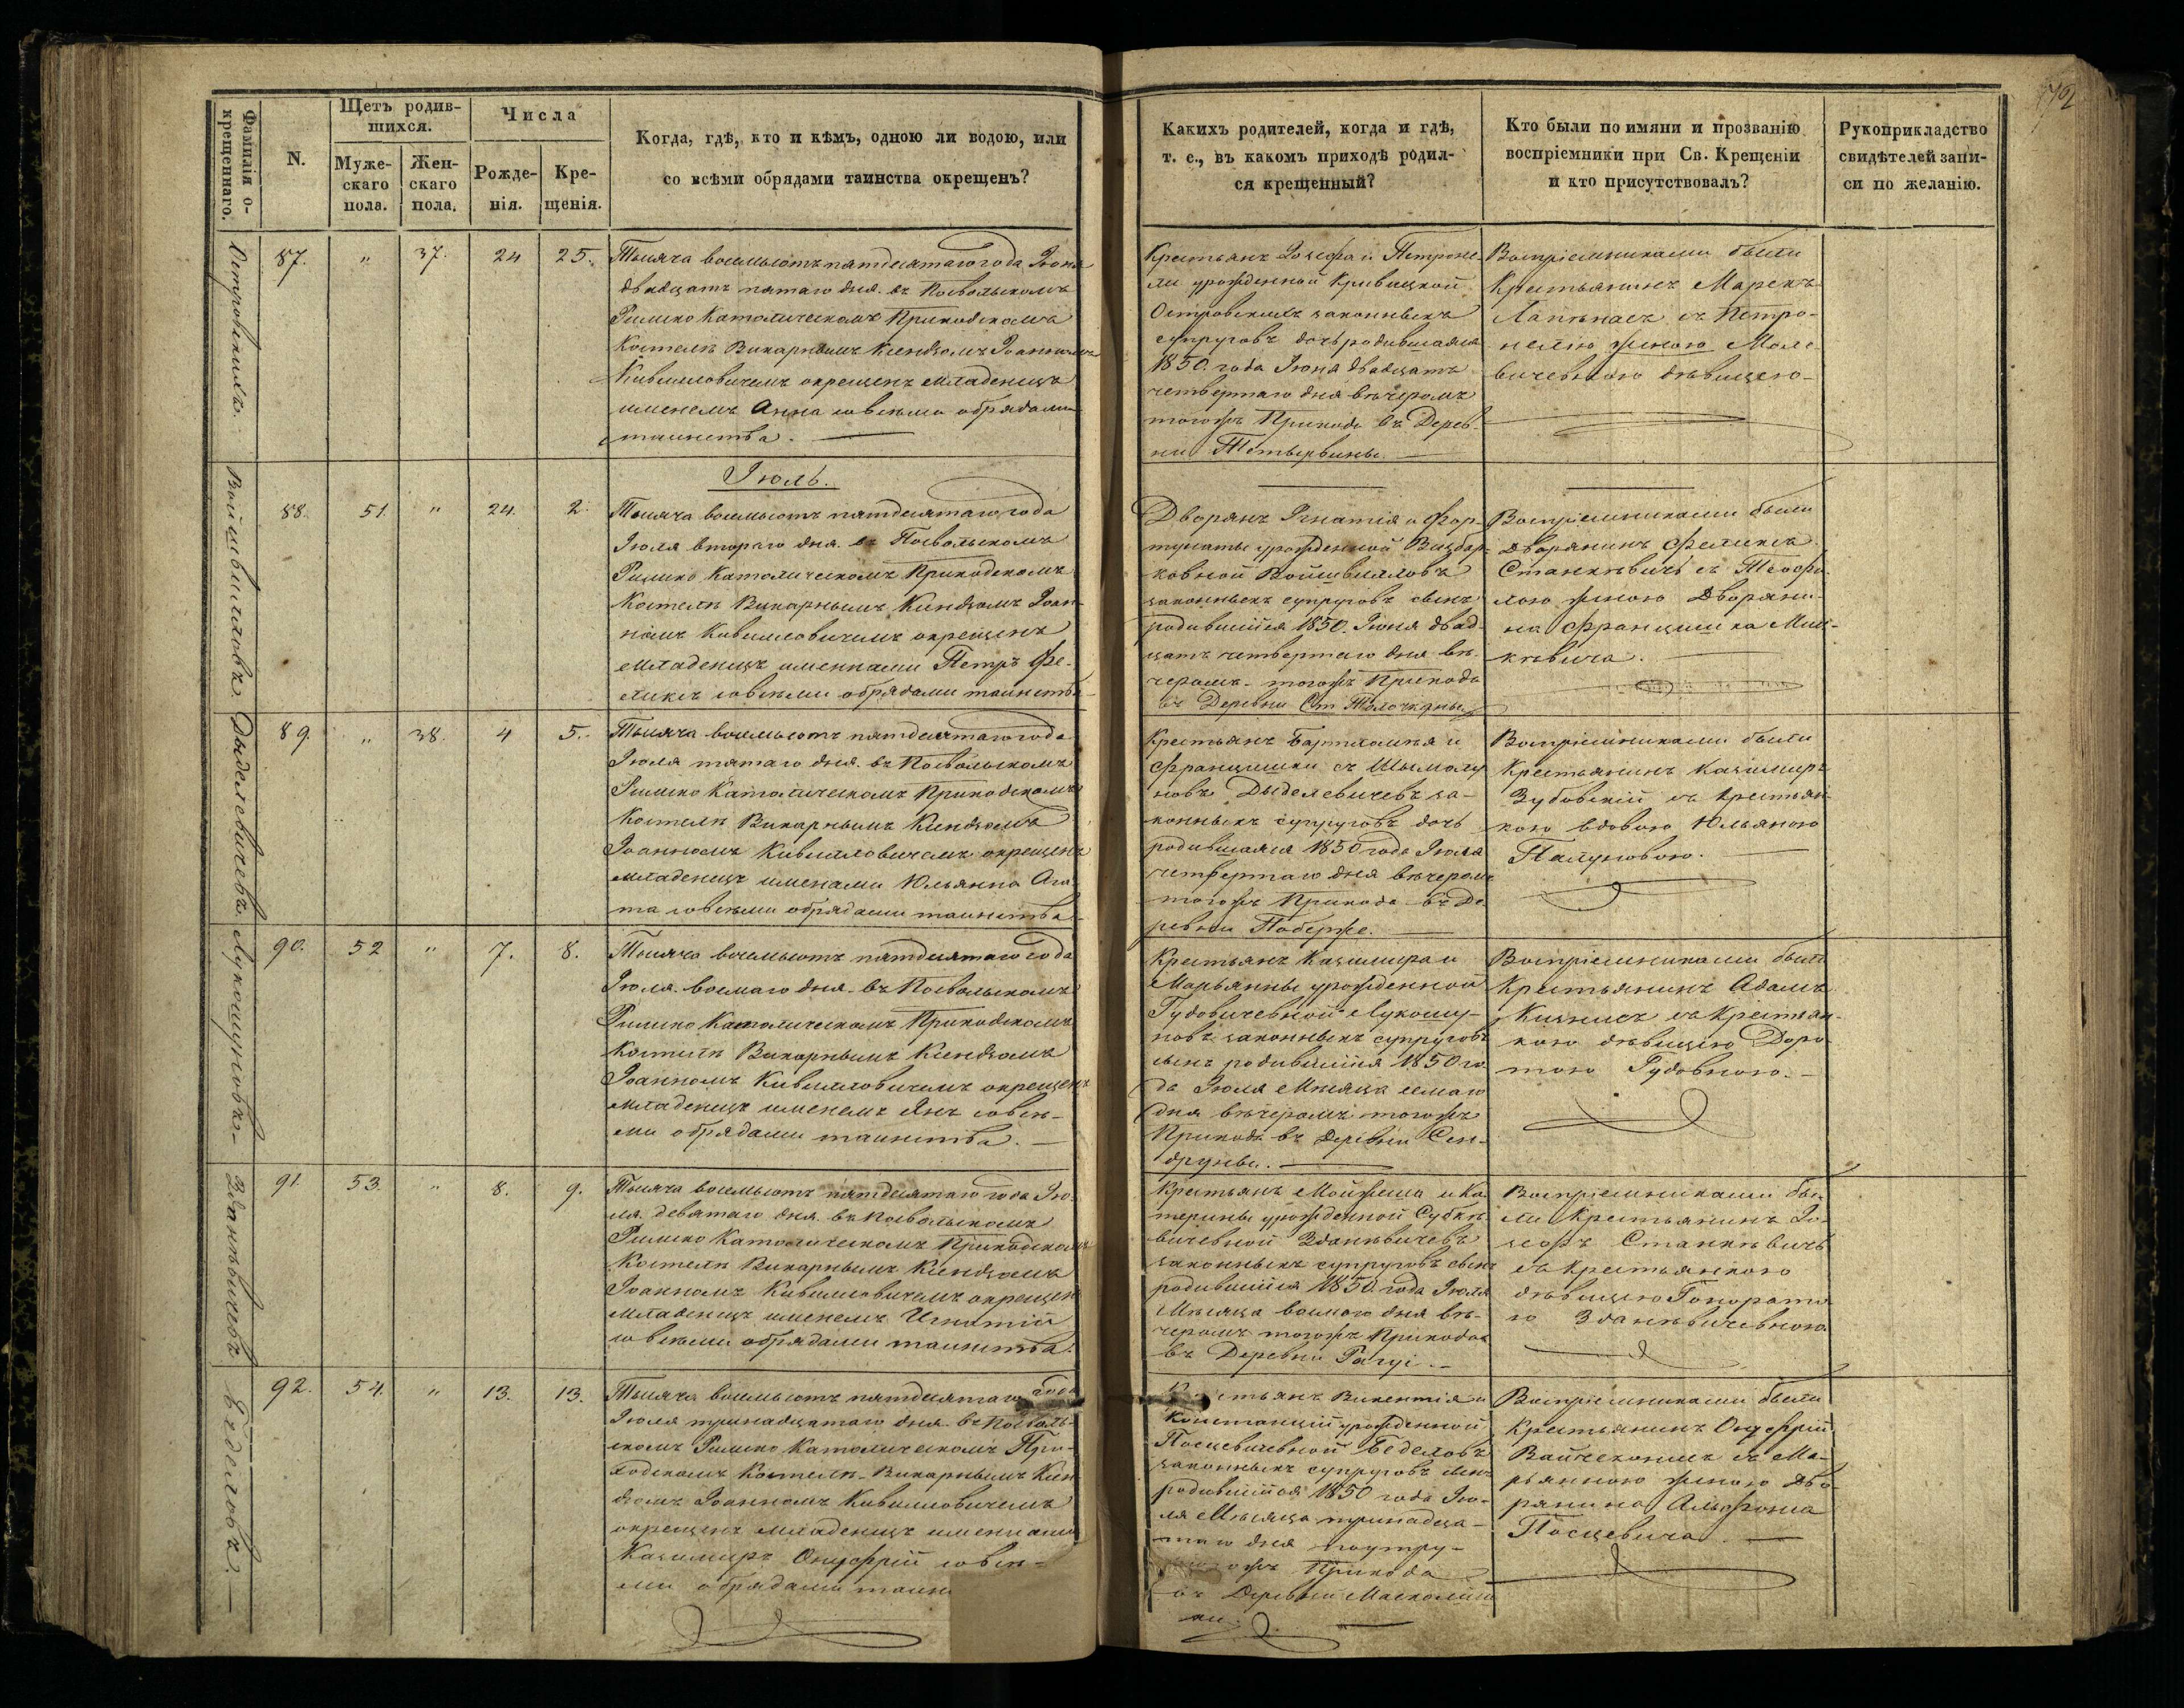 192
Фамилія о-
крещеннаго.
N.
Щетъ родив-
шихся.
Муже-
скаго
пола.
Жен-
скаго
пола.
Числа
Рожде-
нія.
Кре-
щенія.
Когда, гдѣ, кто и кѣмъ, одною ли водою, или
со всѣми обрядами таинства окрещенъ?
Какихъ родителей, когда и гдѣ,
т. е., въ какомъ приходѣ родил-
ся крещенный?
Кто были по имяни и прозванію
воспріемники при Св. Крещеніи
и кто присутствовалъ?
Рукоприкладство
свидѣтелей запи-
си по желанію.
Островскихъ.
87. " 37. 24 25.
Тысяча восемьсотъ пятдесятаго года Іюня
двадцать пятаго дня. въ Посвольскомъ
Римско Католическомъ Приходскомъ
Костелѣ Викарнымъ Ксендзомъ Іоанномъ
Кивилловичемъ окрещенъ младенецъ
именемъ Анна совсѣми обрядами
таинства.
Крестьянъ Іосефа и Петроне-
ли урожденной Кривицкой
Островскихъ законныхъ
супруговъ дочь родившаяся
1850. года Іюня двадцать
четвертаго дня вѣчеромъ
тогожъ Прихода въ Дерев-
ни
Воспріемниками были
Крестьянинъ Марекъ
съ Петро-
нелію женою
дѣвицею
Іюль.
Войшвилловъ.
88. 51. " 24. 2.
Тысяча восемьсотъ пятдесятаго года
Іюля втораго дня. въ Посвольскомъ
Римско Католическомъ Приходскомъ
Костелѣ Викарнымъ Ксендзомъ Іоан-
номъ Кивилловичемъ окрещенъ
младенецъ именнами Петръ Фе-
ликсъ совсѣми обрядами таинства
Дворянъ Игнатія и Фор-
тунаты урожденной
ковной Войшвилловъ
законныхъ супруговъ сынъ
родившійся 1850. Іюня двад-
цать четвертаго дня вѣ-
черомъ тогожъ Прихода
въ Деревни
Воспріемниками были
Дворянинъ Феликсъ
Станкѣвичъ съ Теофи-
лою женою Дворяни-
на Францишка Миц-
кѣвича.
Дыделевичевъ.
89. " 38. 4 5.
Тысяча восемьсотъ пятдесятаго года
Іюля пятаго дня. въ Посвольскомъ
Римско Католическомъ Приходскомъ
Костелѣ Викарнымъ Ксендзомъ
Іоанномъ Кивилловичемъ окрещенъ
младенецъ именами Юльянна Ага-
та совсѣми обрядами таинства
Крестьянъ Бартломѣя и
Францишки съ
новъ Дыделевичевъ за-
конныхъ супруговъ дочь
родившаяся 1850 года Іюля
четвертаго дня вѣчеромъ
тогожъ Прихода въ Де-
ревни Побержe.
Воспріемниками были
Крестьянинъ Казимиръ
Зубовскій съ крестьян-
кою вдовою Юльяною
Лукошуновъ.
90. 52 " 7. 8.
Тысяча восемьсотъ пятдесятаго года
Іюля. восмаго дня. въ Посвольскомъ
Римско Католическомъ Приходскомъ
Костелѣ Викарнымъ Ксендзомъ
Іоанномъ Кивилловичемъ окрещенъ
младенецъ именемъ Янъ совсѣ-
ми обрядами таинства.
Крестьянъ Казимира и
Марьянны урожденной
Гудовичевной Лукошу-
новъ законныхъ супруговъ
сынъ родившійся 1850 го-
да Іюля Мѣсяца семаго
дня вѣчеромъ тогожъ
Прихода въ Деревни Сен-
друны.
Воспріемниками были
Крестьянинъ Адамъ
съ Крестьян-
кою дѣвицею Доро-
тою Гудовною.
Зданѣвичевъ
91. 53. " 8. 9.
Тысяча восемьсотъ пятдесятаго года Ію-
ля. девятаго дня. въ Посвольскомъ
Римско Католическомъ Приходскомъ
Костелѣ Викарнымъ Ксендзомъ
Іоанномъ Кивилловичемъ окрещенъ
Младенецъ именемъ Игнатій
совсѣми обрядами таинства.
Крестьянъ Мойжеша и Ка-
терины урожденной Субкѣ-
вичевной Зданѣвичевъ
законныхъ супруговъ сынъ
родившійся 1850. года Іюля
Мѣсяца восмаго дня вѣ-
черомъ тогожъ Прихода
въ Деревни Рагуі.
Воспріемниками бы-
ли Крестьянинъ Іо-
зефъ Станкѣвичъ
съ крестьянкою
дѣвицею Гонорато-
ю Зданѣвичевною.
Бѣделовъ.
92. 54. " 13. 13.
Тысяча восемьсотъ пятдесятаго года
Іюля тринадцатаго дня. въ Посволь-
скомъ Римско Католическомъ При-
ходскомъ Костелѣ. Викарнымъ Ксен-
дзомъ Іоанномъ Кивилловичемъ
окрещенъ младенецъ именнами
Казимиръ Онуфрій совсѣ-
ми обрядами таин
стьянъ Викентія и
Констанціи урожденной
Посцевичевной Беделовъ
законныхъ супруговъ сынъ
родившійся 1850 года Ію-
ля Мѣсяца тринадца-
таго дня поутру
ожъ Прихода
въ Деревни Масколиш
ки.
Воспріемниками были
Крестьянинъ Онуфрій
съ Ма-
рьянною женою Дво-
рянина Альфонса
Посцевича.